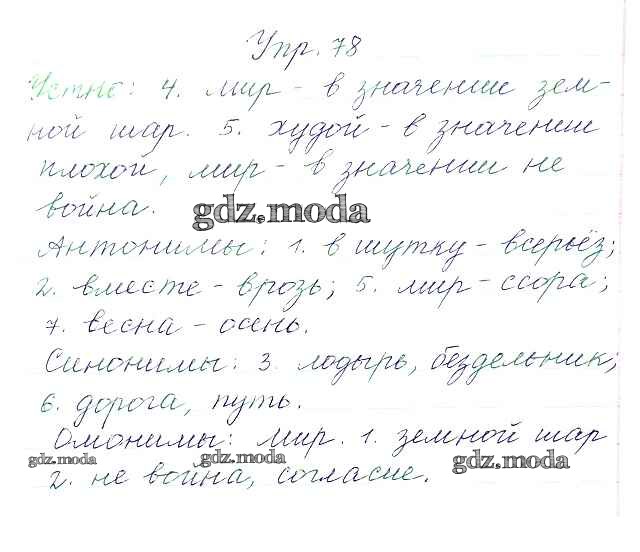 Упр. 78
Устно: 4. мир - в значение зем-
ной шар. 5. худой - в значении
плохой, мир - в значении не
война.
gdz.moda
Антонимы: 1. в шутку - всерьёз;
2. вместе - врозь; 5. мир - ссора;
7. весна - осень.
Синонимы: 3. лодырь, бездельник;
6. дорога, путь.
Омонимы: мир. 1. земной шар
gdz.moda gdz.moda gdz.moda
2. не война, согласие.